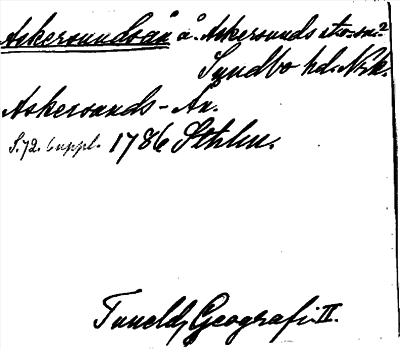 Askersundsån å. Askersunds sts-sn?
Sundbo hd. Nrk.
Askersunds-Ån.
S. 72. suppl. 1786 Sthlm.
Tuneld, Geografi II.